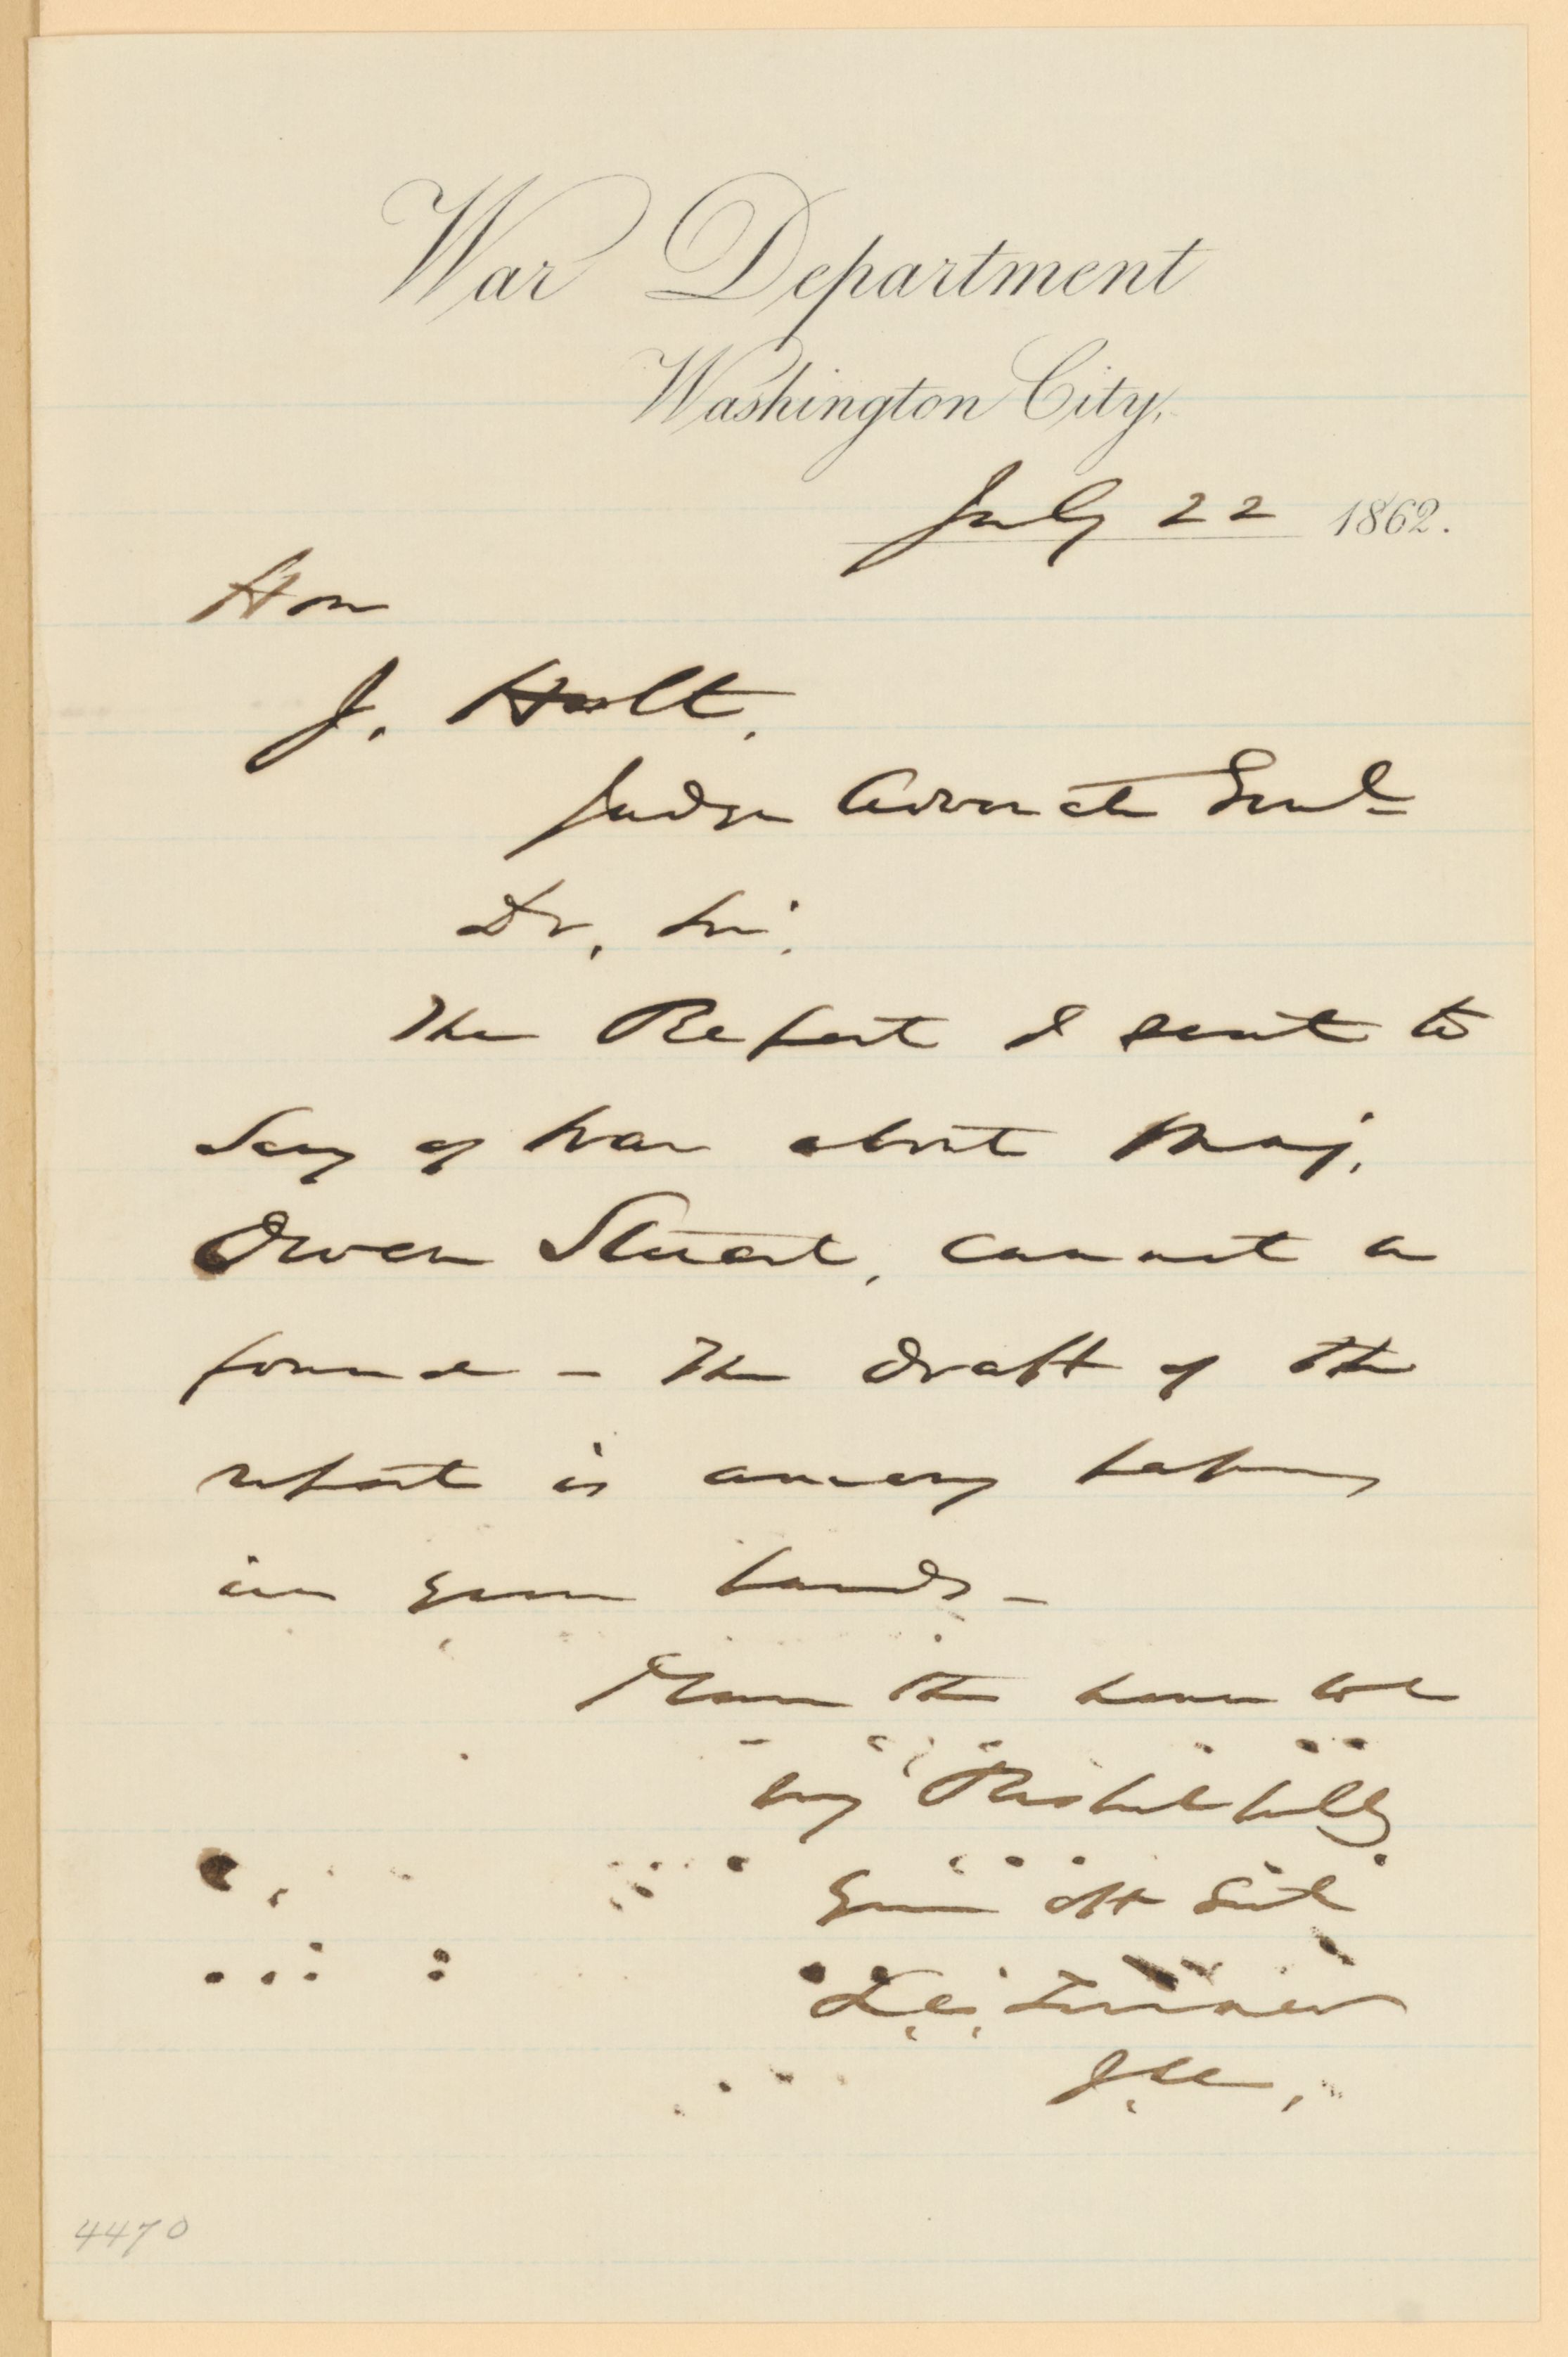 War Department
Washington City,
July 22 1862.
Hon
J. Holt,
Judge Advocate Genl
Dr. Sir:
The Report I sent to
Secy of War about Maj.
Owen Stuart, cannot be
found - The draft of the
report is among papers
in your hands -
Please
Very Respectfully
Your obt Svt
L. C. Turner
J. A.
4470